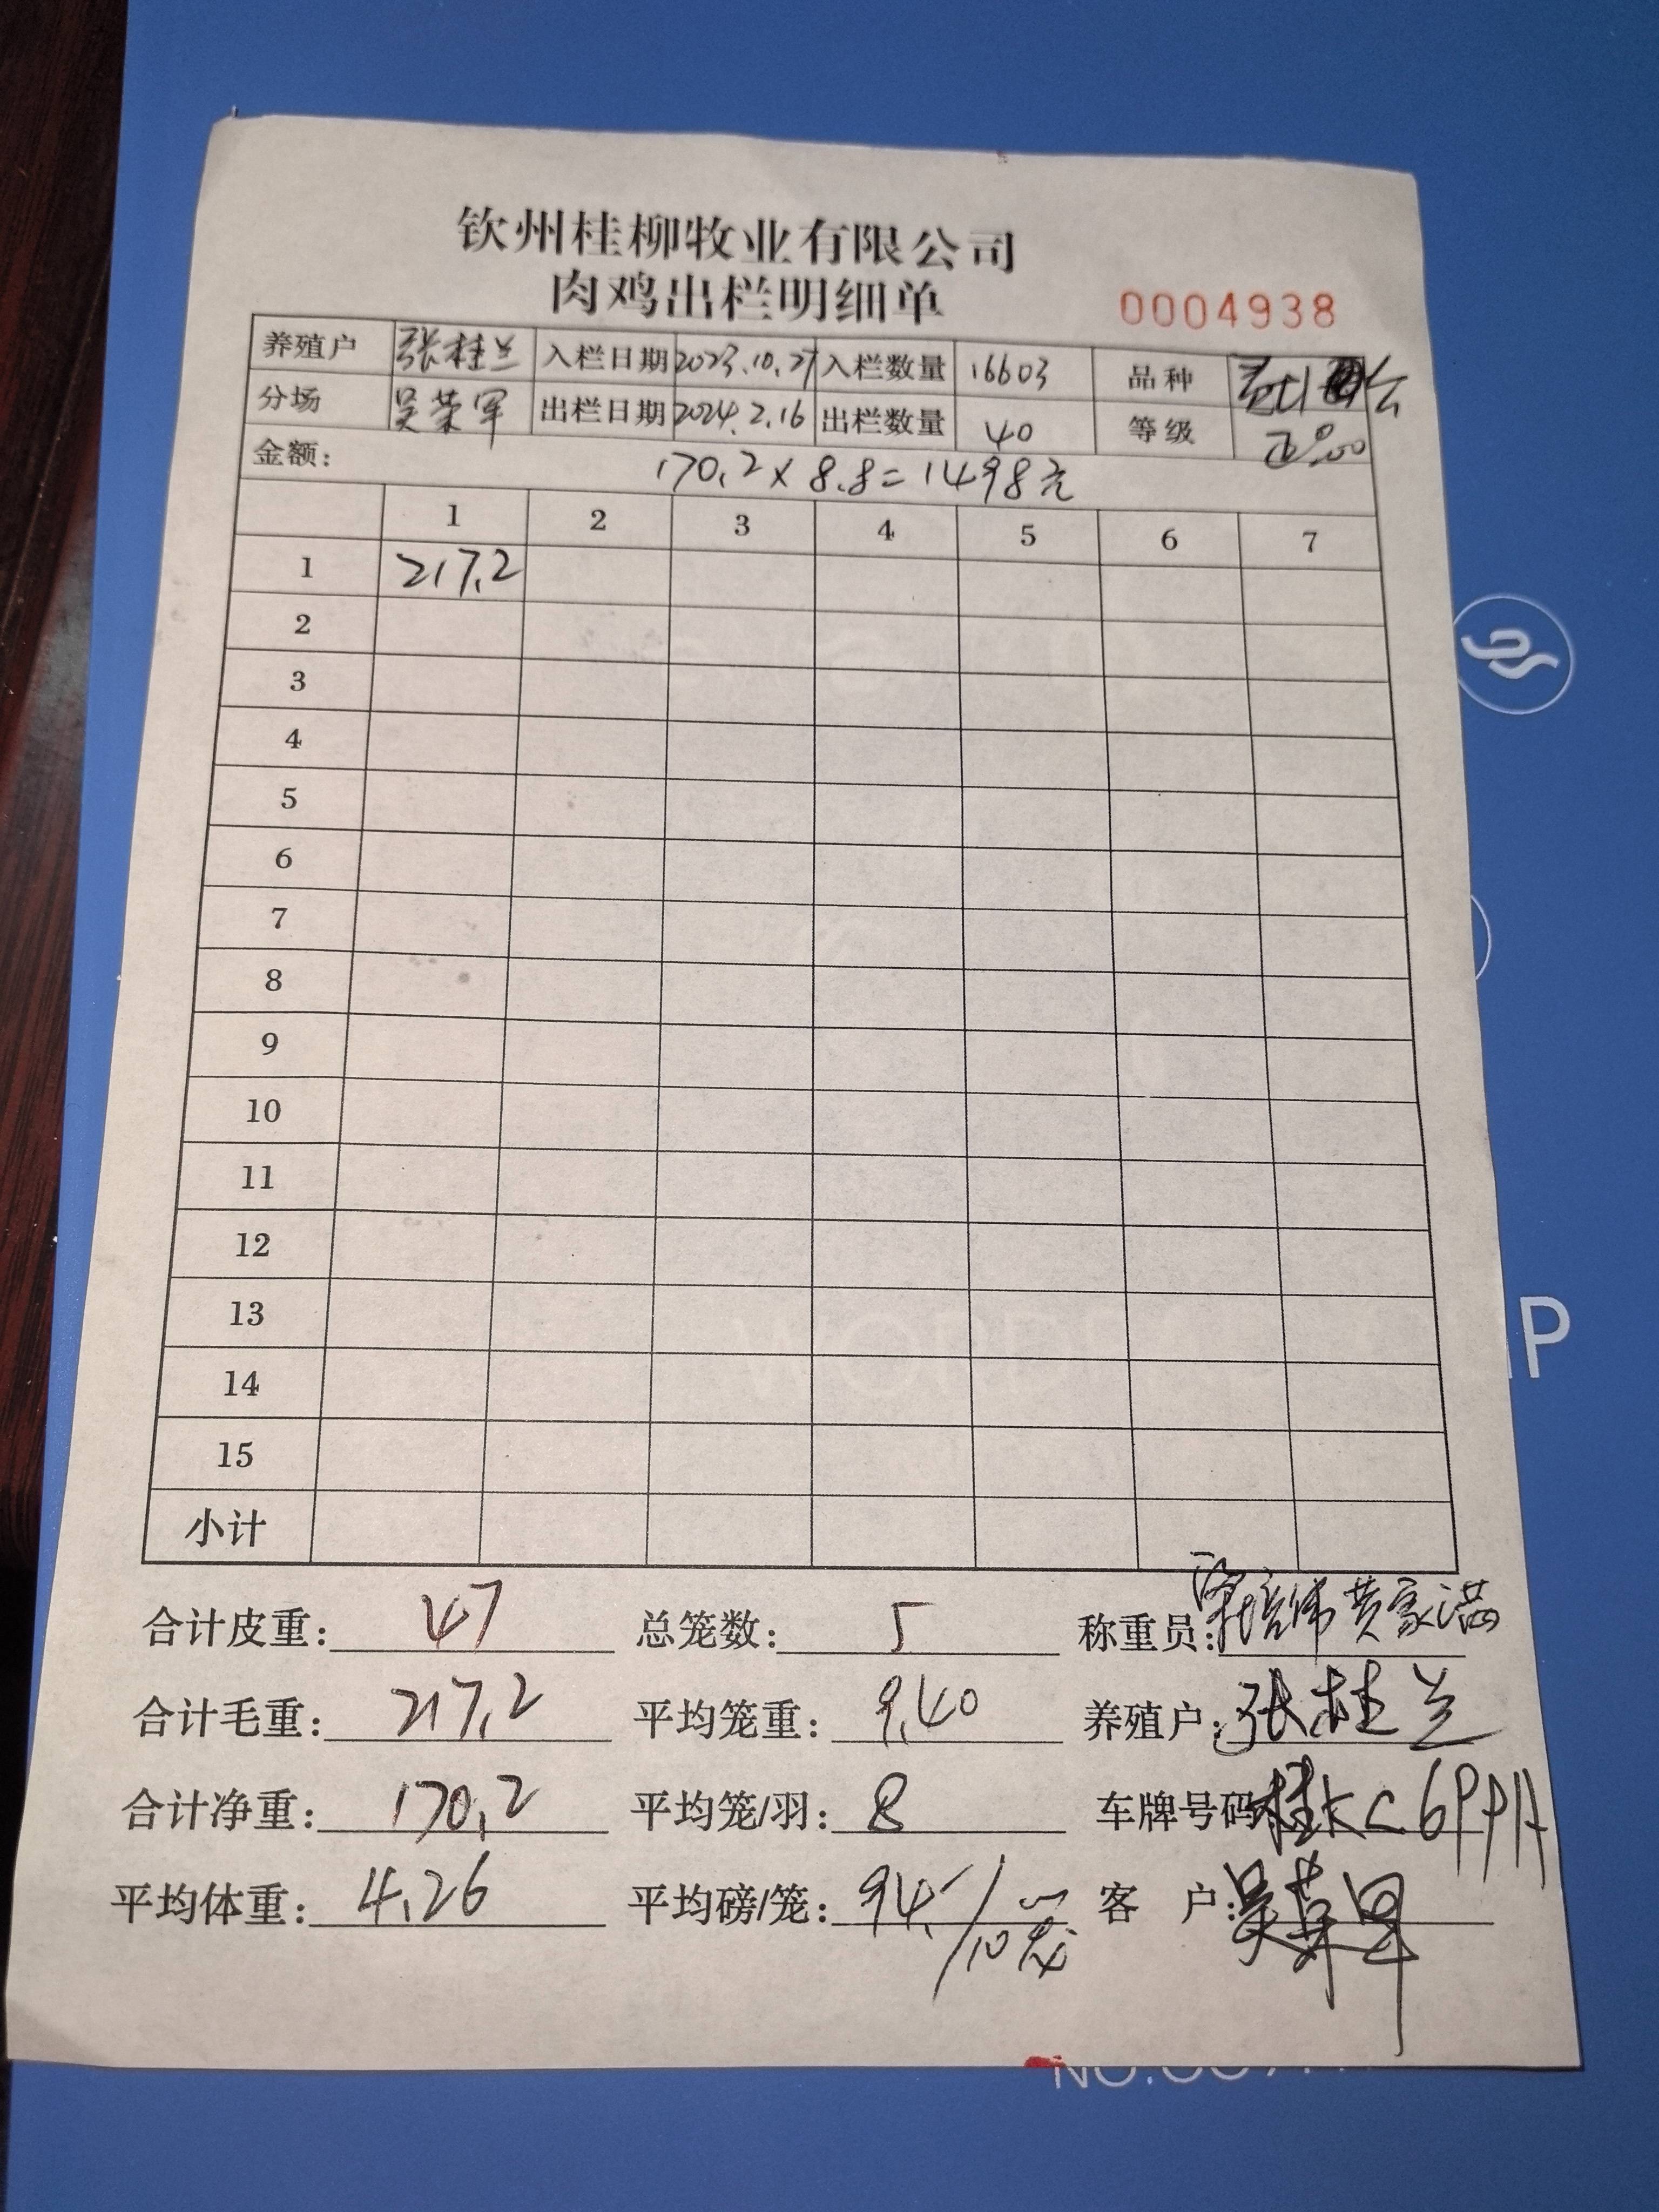 钦州桂柳牧业有限公司
肉鸡出栏明细单
0004938
养殖户 张桂兰 入栏日期 2023.10.27 入栏数量 16603 品种
分场 吴荣军 出栏日期 2024.2.16 出栏数量 40 等级
金额: 170.2×8.8=1498元
1 2 3 4 5 6 7
1 217.2
2
3
4
5
6
7
8
9
10
11
12
13
14
15
小计
合计皮重: 47 总笼数: 5 称重员: 黄家满
合计毛重: 217.2 平均笼重: 9.40 养殖户: 张桂兰
合计净重: 170.2 平均笼/羽: 8 车牌号码 桂KC6PPH
平均体重: 4.26 平均磅/笼: 94./10 客 户:
P
NO.